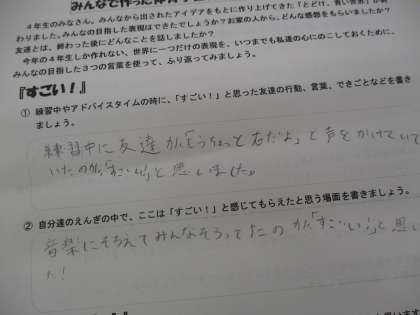 みんなで作った
4年生のみなさん。みんなから出されたアイデアをもとに作り上げてきた「とどけ、青い世界」が
わりました。みんなの目指した表現はできたでしょうか？お家の人から、どんな感想をもらいましたか？
友達とは、終わった後にどんなことを話しましたか？
今年の4年生しか作れない、世界に一つだけの表現を、いつまでも私達の心にのこしておくために、
みんなの目指した3つの言葉を使って、ふり返ってみましょう。
『すごい！』
① 練習中やアドバイスタイムの時に、「すごい！」と思った友達の行動、言葉、できごとなどを書き
ましょう。
練習中に友達が、「もうちょっと右だよ」と声をかけてい
いたのが、「すごい！」と思いました。
② 自分達のえんぎの中で、ここは「すごい！」と感じてもらえたと思う場面を書きましょう。
音楽にそろえてみんなそろってたのが「すごい！」と思い
た！